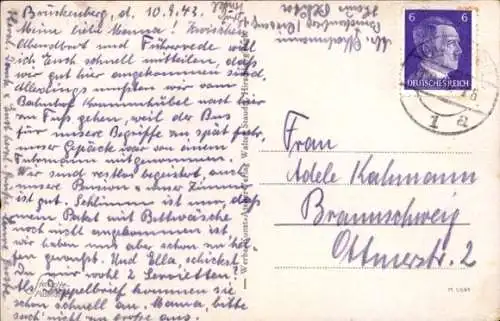 Brückenberg, d. 10.9.43.
Meine liebe Mama! Zwischen
Abendbrot und Führerrede will
ich Euch schnell mitteilen, daß
wir gut hier angekommen sind.
Allerdings mußten wir vom
Bahnhof Krummhübel nach hier
zu Fuß gehen, weil der Bus
für unsere Begriffe zu spät fuhr.
unser Gepäck war von einem
Fuhrmann mitgenommen.
Wir sind restlos begeistert, auch
unsere Pension u. unser Zimmer
ist gut. Schlimm ist nur, daß
mein Paket mit Bettwäsche
noch nicht angekommen ist,
wir haben uns aber schon zu hel-
fen gewußt. Und Ella, schickst
Du mir wohl 2 Servietten.
Als Doppelbrief kommen sie
schon schnell an. Mama, bitte
such nicht zu große aus.
6 6
DEUTSCHES REICH
1 a
Frau
Adele Kahmann
Braunschweig
Ottmerstr. 2